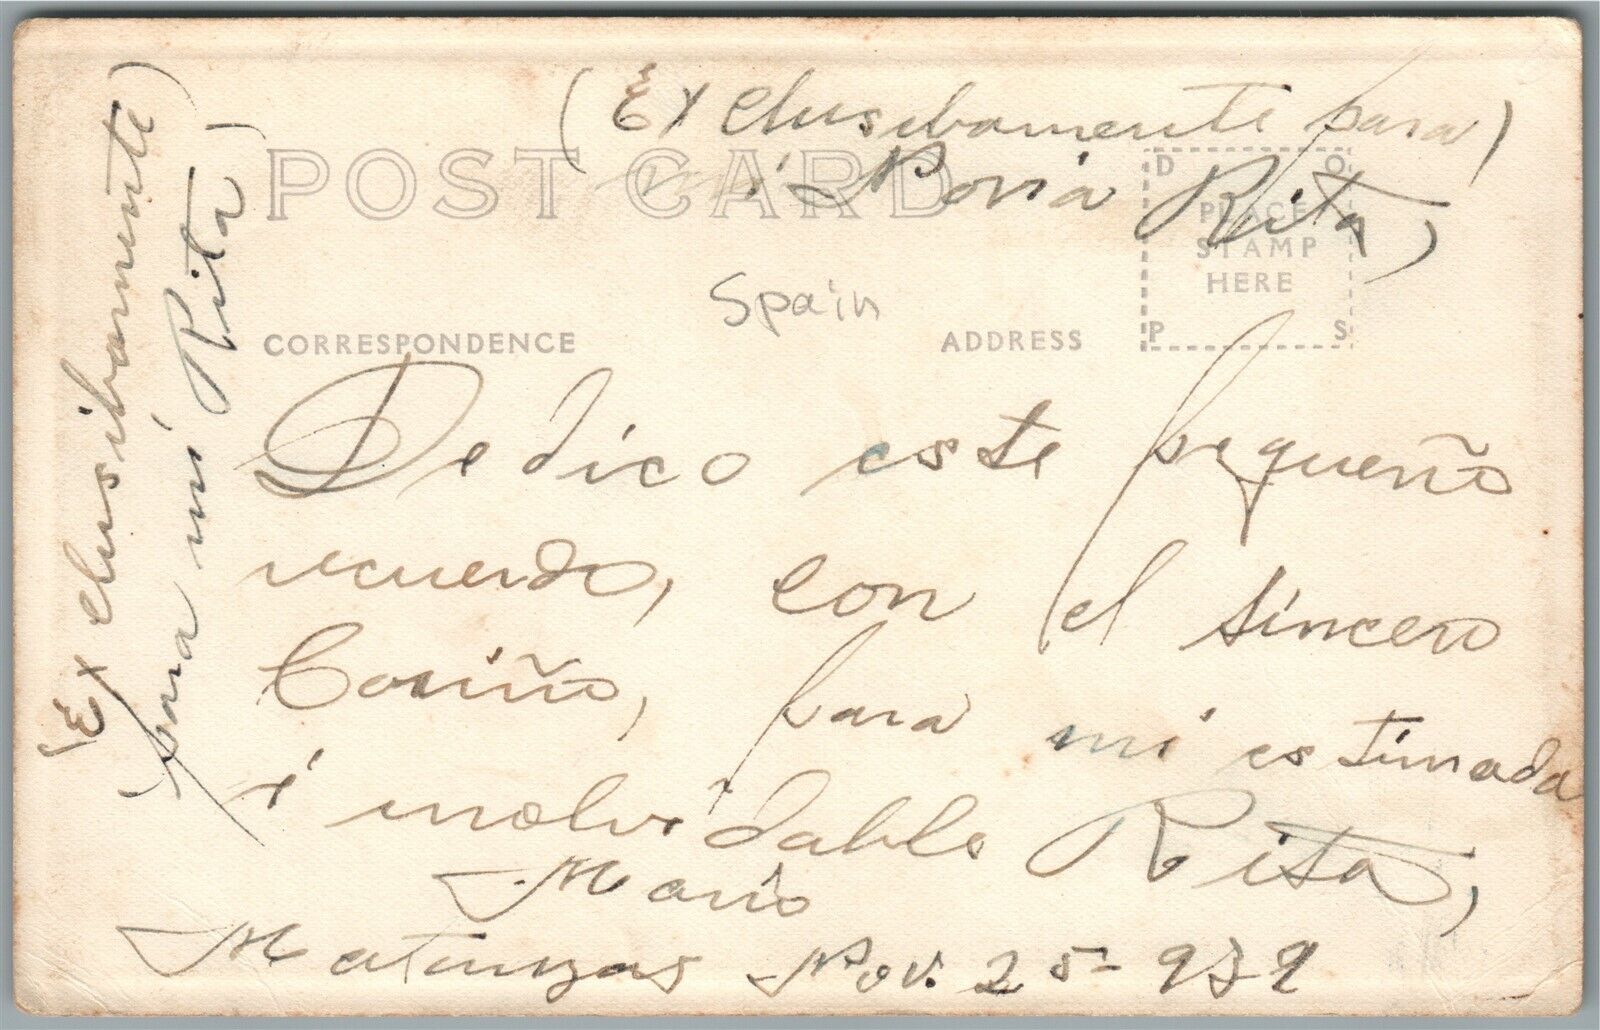 (Exclusibamente para)
mi Novia Rita,)
POST CARD
D O
PLACE
STAMP
HERE
P S
Spain
CORRESPONDENCE
ADDRESS
(Exclusibamente)
(para mi Rita)
Dedico este pequeño
recuerdo, con el sincero
Cariño, para mi estimada
i inolvidable Rita,
Mario
Matanzas Nov. 25-939